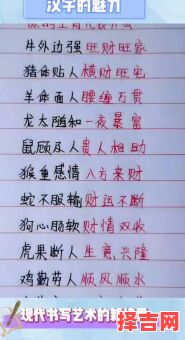 汉字的魅力
牛外边强 旺财旺家
猪体贴人 横财旺宅
羊体面人 腰缠万贯
龙太随和 一夜暴富
鼠顾及人 贵人相助
猴重感情 八方来财
蛇不服输 财运不断
狗心肠软 财情双收
虎果断人 生意兴隆
鸡勤劳人 顺风顺水
现代书写艺术的
择吉网
zejiwang.com